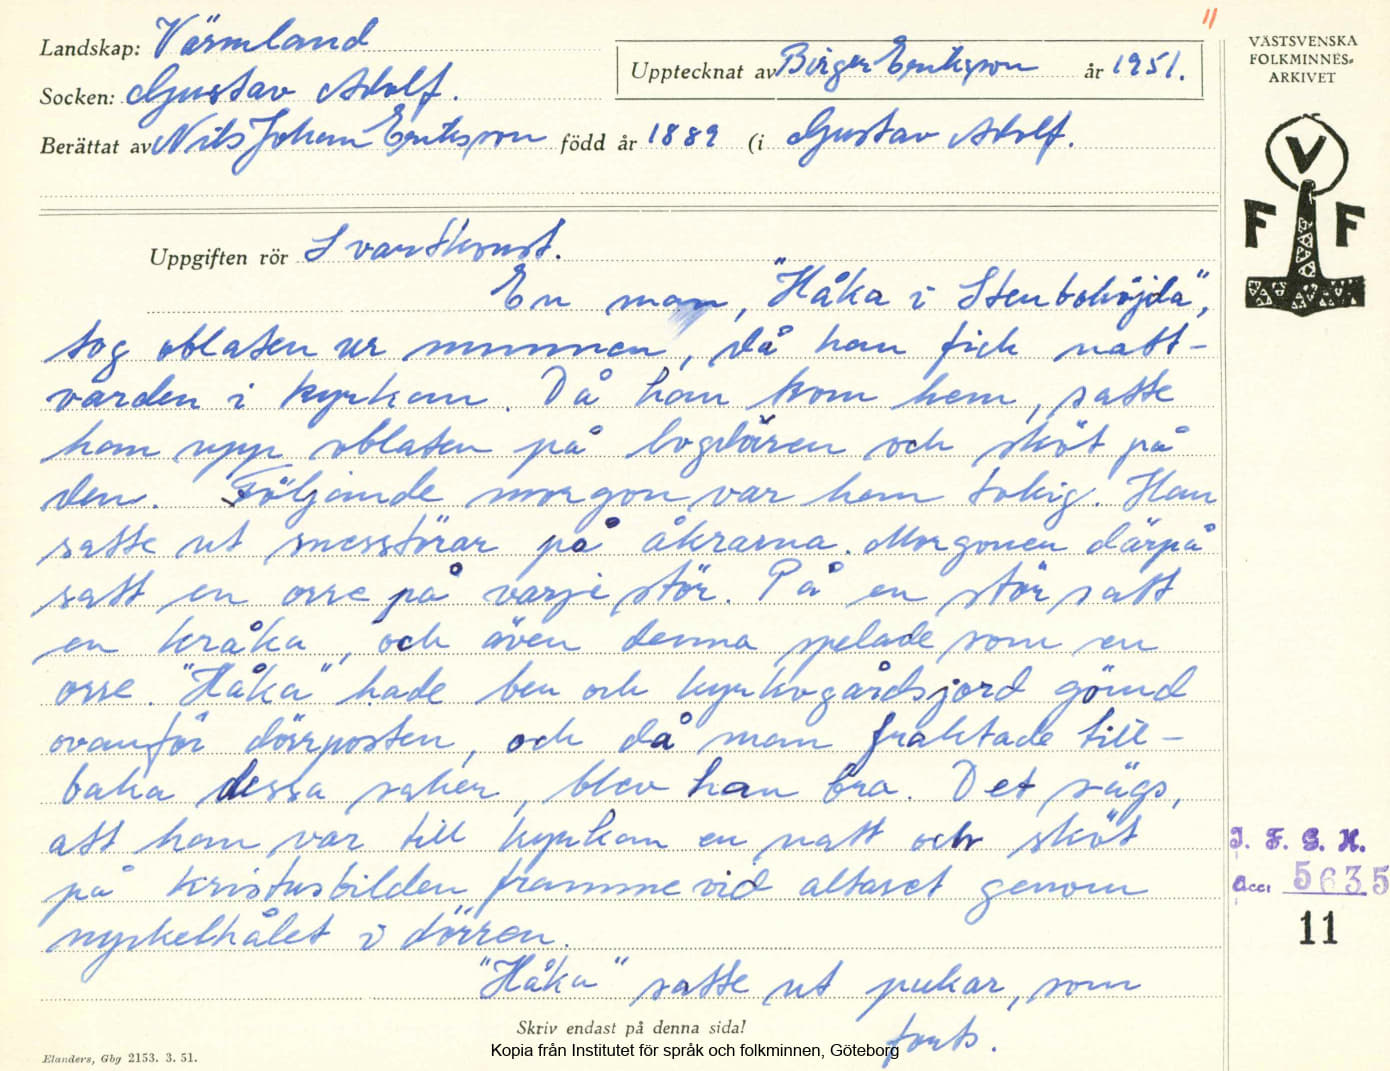 11
Landskap: Värmland
Socken: Gustav Adolf.
Upptecknat av Birger Eriksson år 1951.
Berättat av Nils Johan Eriksson född år 1889 (i Gustav Adolf.
VÄSTSVENSKA
FOLKMINNES-
ARKIVET
V
F F
Uppgiften rör Svartkonst.
En man, "Håka i Stenbohöjda",
tog oblaten ur munnen, då han fick natt-
varden i kyrkan. Då han kom hem, satte
han upp oblaten på logdören och sköt på
den. Följande morgon var han tokig. Han
satte ut snesstörar på åkrarna. Morgonen därpå
satt en orre på varje stör. På en stör satt
en kråka, och även denna spelade som en
orre. "Håka" hade ben och kyrkogårdsjord gömd
ovanför dörrposten, och då man fraktade till-
baka dessa saker, blev han bra. Det sägs,
att han var till kyrkan en natt och sköt
på kristusbilden framme vid altaret genom
nyckelhålet i dörren.
"Håka" satte ut pukar, som
forts.
I. F. G. H.
Acc: 5635
11
Skriv endast på denna sida!
Elanders, Gbg 2153. 3. 51.
Kopia från Institutet för språk och folkminnen, Göteborg